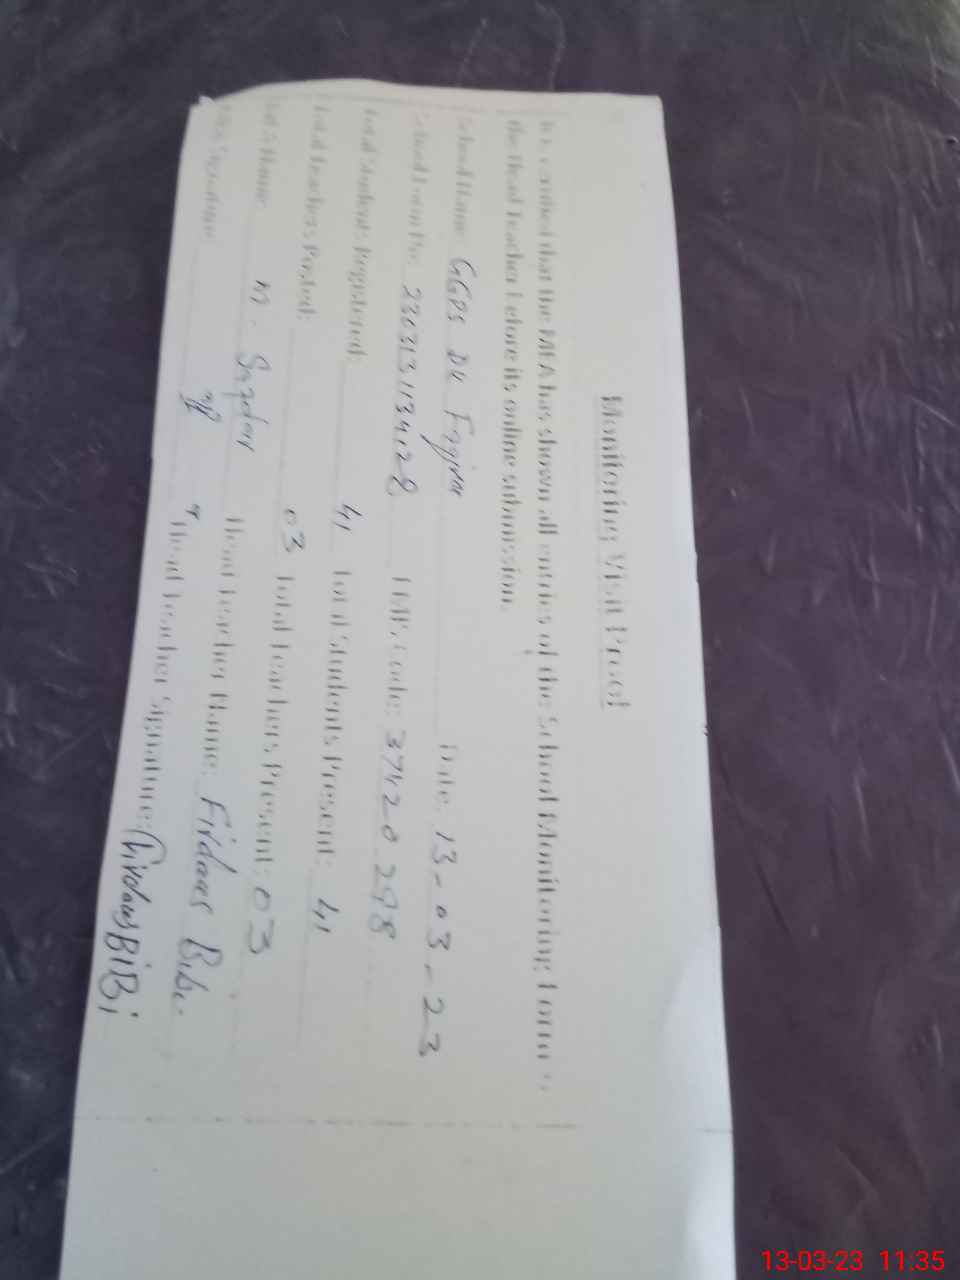 Monitoring Visit Proof
It is certified that the MEA has shown all entries of the School Monitoring Form to
the Head Teacher before its online submission.
School Name: GGPS Dk Date: 13-03-23
School Form No: EMIS code: 37420298
Total Students Registered: 41 Total Students Present: 41
Total Teachers Posted: 03 Total Teachers Present: 03
Name: M. Head Teacher Name: Firdous Bibi
Signature: Head Teacher Signature: Firdous BiBi
13-03-23 11:35